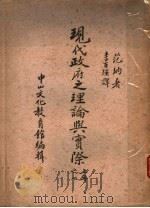 范納著
李百强譯
現代政府之理論與實際
中山文化教育館編輯